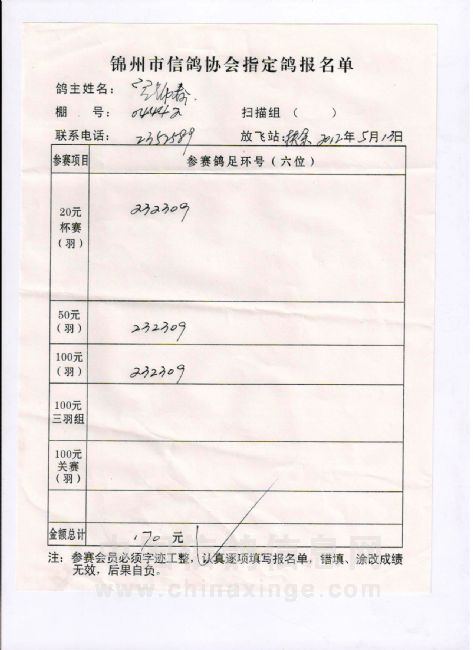 锦州市信鸽协会指定鸽报名单
鸽主姓名：
棚 号： 04442 扫描组（ ）
联系电话： 2352589 放飞站：扶余 2012年5月13日
参赛项目 参赛鸽足环号（六位）
20元
杯赛
（羽）
232309
50元
（羽）
232309
100元
（羽）
232309
100元
三羽组
100元
关赛
（羽）
金额总计 170 元
注：参赛会员必须字迹工整，认真逐项填写报名单，错填、涂改成绩
无效，后果自负。
www.chinaxinge.com